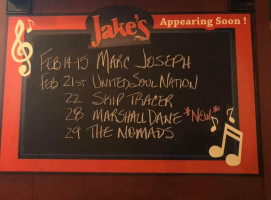 Jake's
Appearing Soon !
Feb 14-15 Marc Joseph
Feb 21st United Soul Nation
22 Skip Tracer
28 Marshall Dane *New*
29 The Nomads